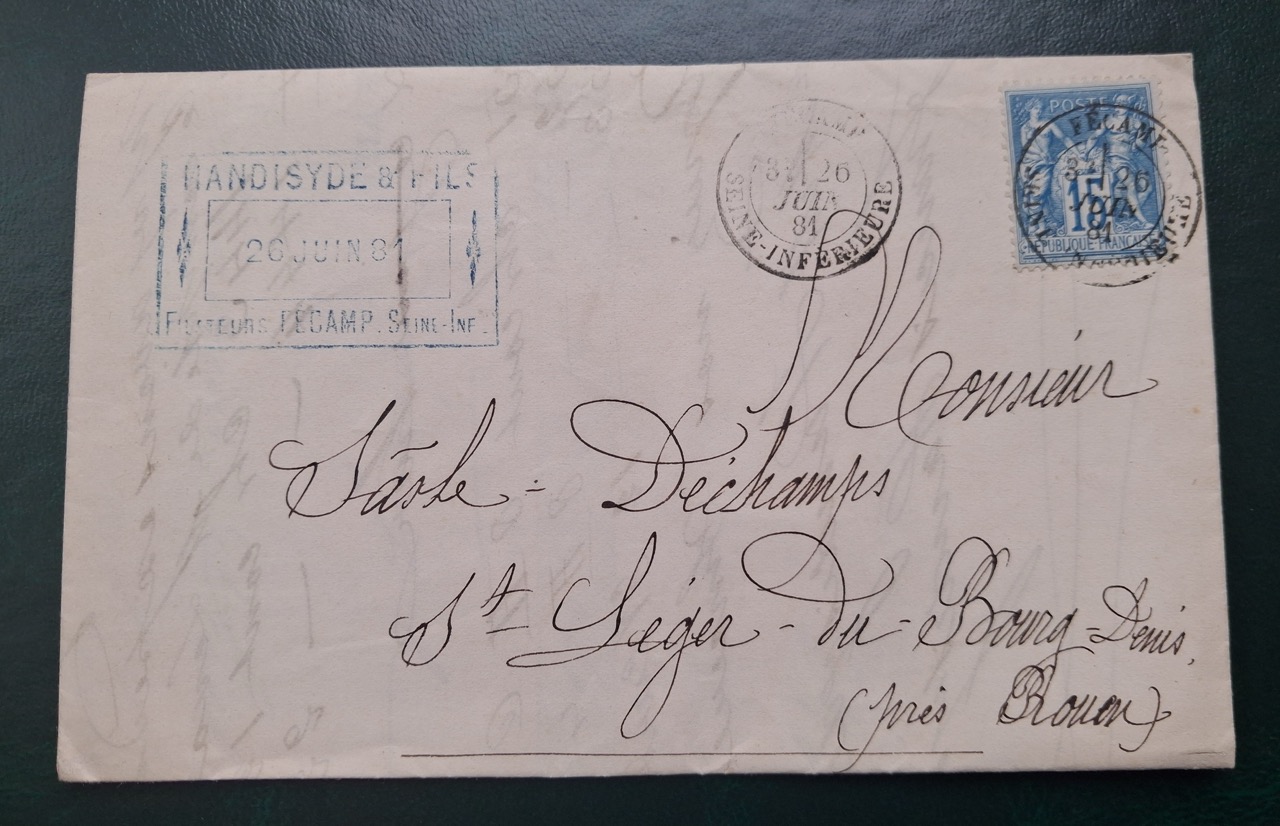 HANDISYDE & FILS
26 JUIN 81
FILATEURS FÉCAMP. SEINE-INF.
FÉCAMP
3E 26
JUIN
81
SEINE-INFÉRIEURE
POSTE
15
RÉPUBLIQUE FRANÇAISE
FÉCAMP
3E 26
JUIN
81
SEINE-INFÉRIEURE
Monsieur
Déchamps
St Léger-du-Bourg-Denis,
(près Rouen)